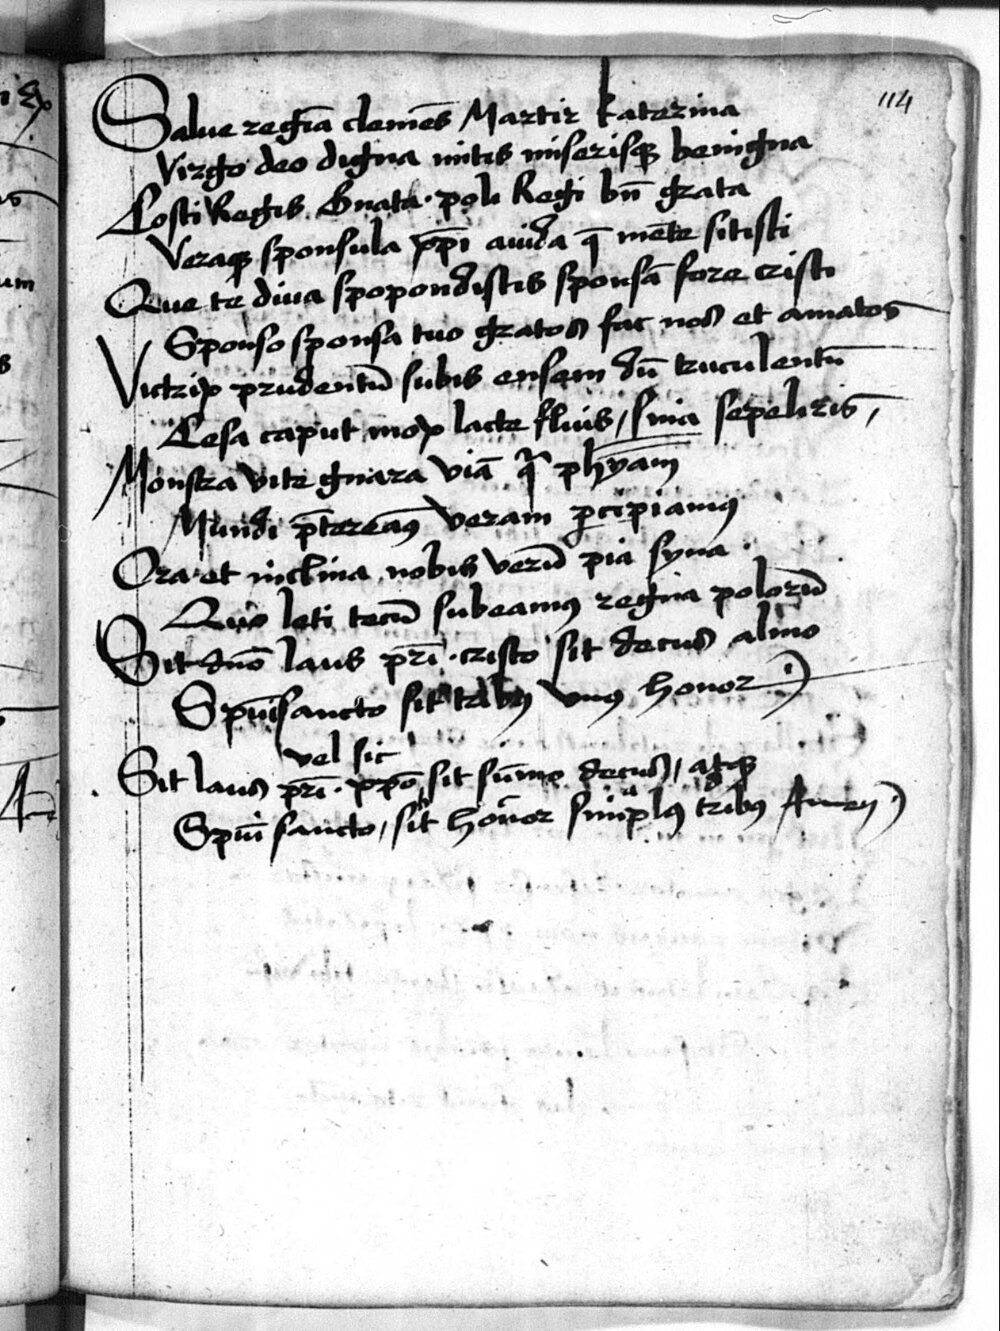 114
Salue regīa clemēs Martir katerina
Virgo deo digna mitis miserisqꝫ benigna
Costi Regis Gnata · poli Regi bn̄ grata
Veraqꝫ sponsula auida q̄ mēte sitisti
Que te diua spopondistis sponsā fore cristi
Sponso sponsa tuo gratos fac nos et amatos
Victrix prudentū subis ensem dū truculentū
Lesa caput mox lacte fluis / sinia sepeliris /
Monstra vite gnara viā
Mundi p̄tereaꝰ veram ꝑcipiamꝰ
Ora et inclina nobis verū pia syna ·
Quo leti tecū subeamꝰ regina polorū
Sit dn̄o laus pr̄i · cristo sit decus almo
Spūisancto sit tribꝰ vnꝰ honor
vel sic
Sit laus pr̄i · sit sūmo decus / atqꝫ
Spūi sancto / sit honor simplꝰ tribꝰ Amen